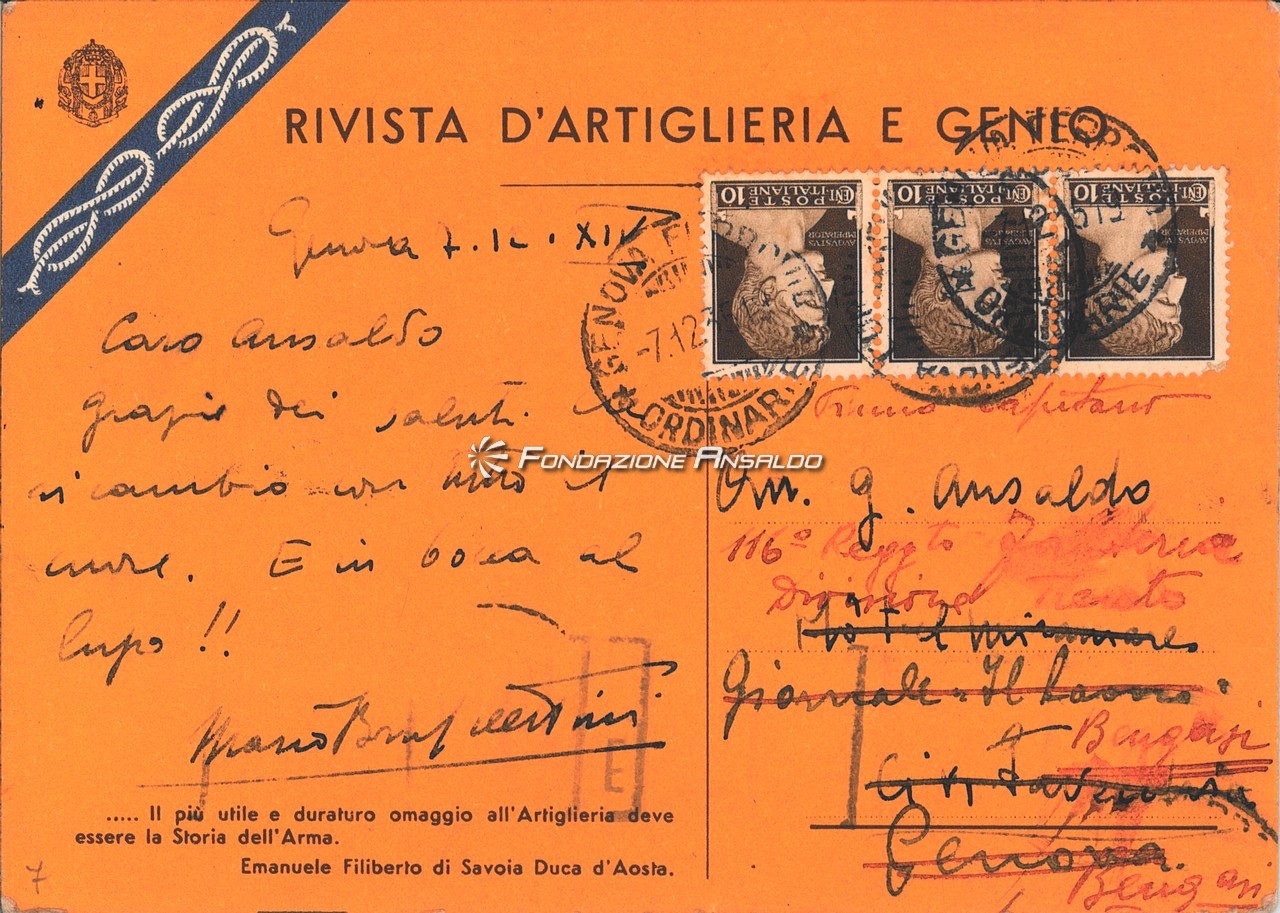 RIVISTA D'ARTIGLIERIA E GENIO
CENT. 10
POSTE ITALIANE
CENT. 10
POSTE ITALIANE
CENT. 10
POSTE ITALIANE
GENOVA
-7.12.3
ORDINARIE
Genova 7.12.XIV
Caro Ansaldo
grazie dei saluti e
ricambio con tutto il
cuore. E in bocca al
lupo!!
Mario
..... Il più utile e duraturo omaggio all'Artiglieria deve
essere la Storia dell'Arma.
Emanuele Filiberto di Savoia Duca d'Aosta.
7
Primo Capitano
On. G. Ansaldo
116º Reggto Fanteria
Divisione Trento
Hotel Miramare
Giornale "Il Lavoro"
Bengasi
Genova.
Bengasi
E
FONDAZIONE ANSALDO